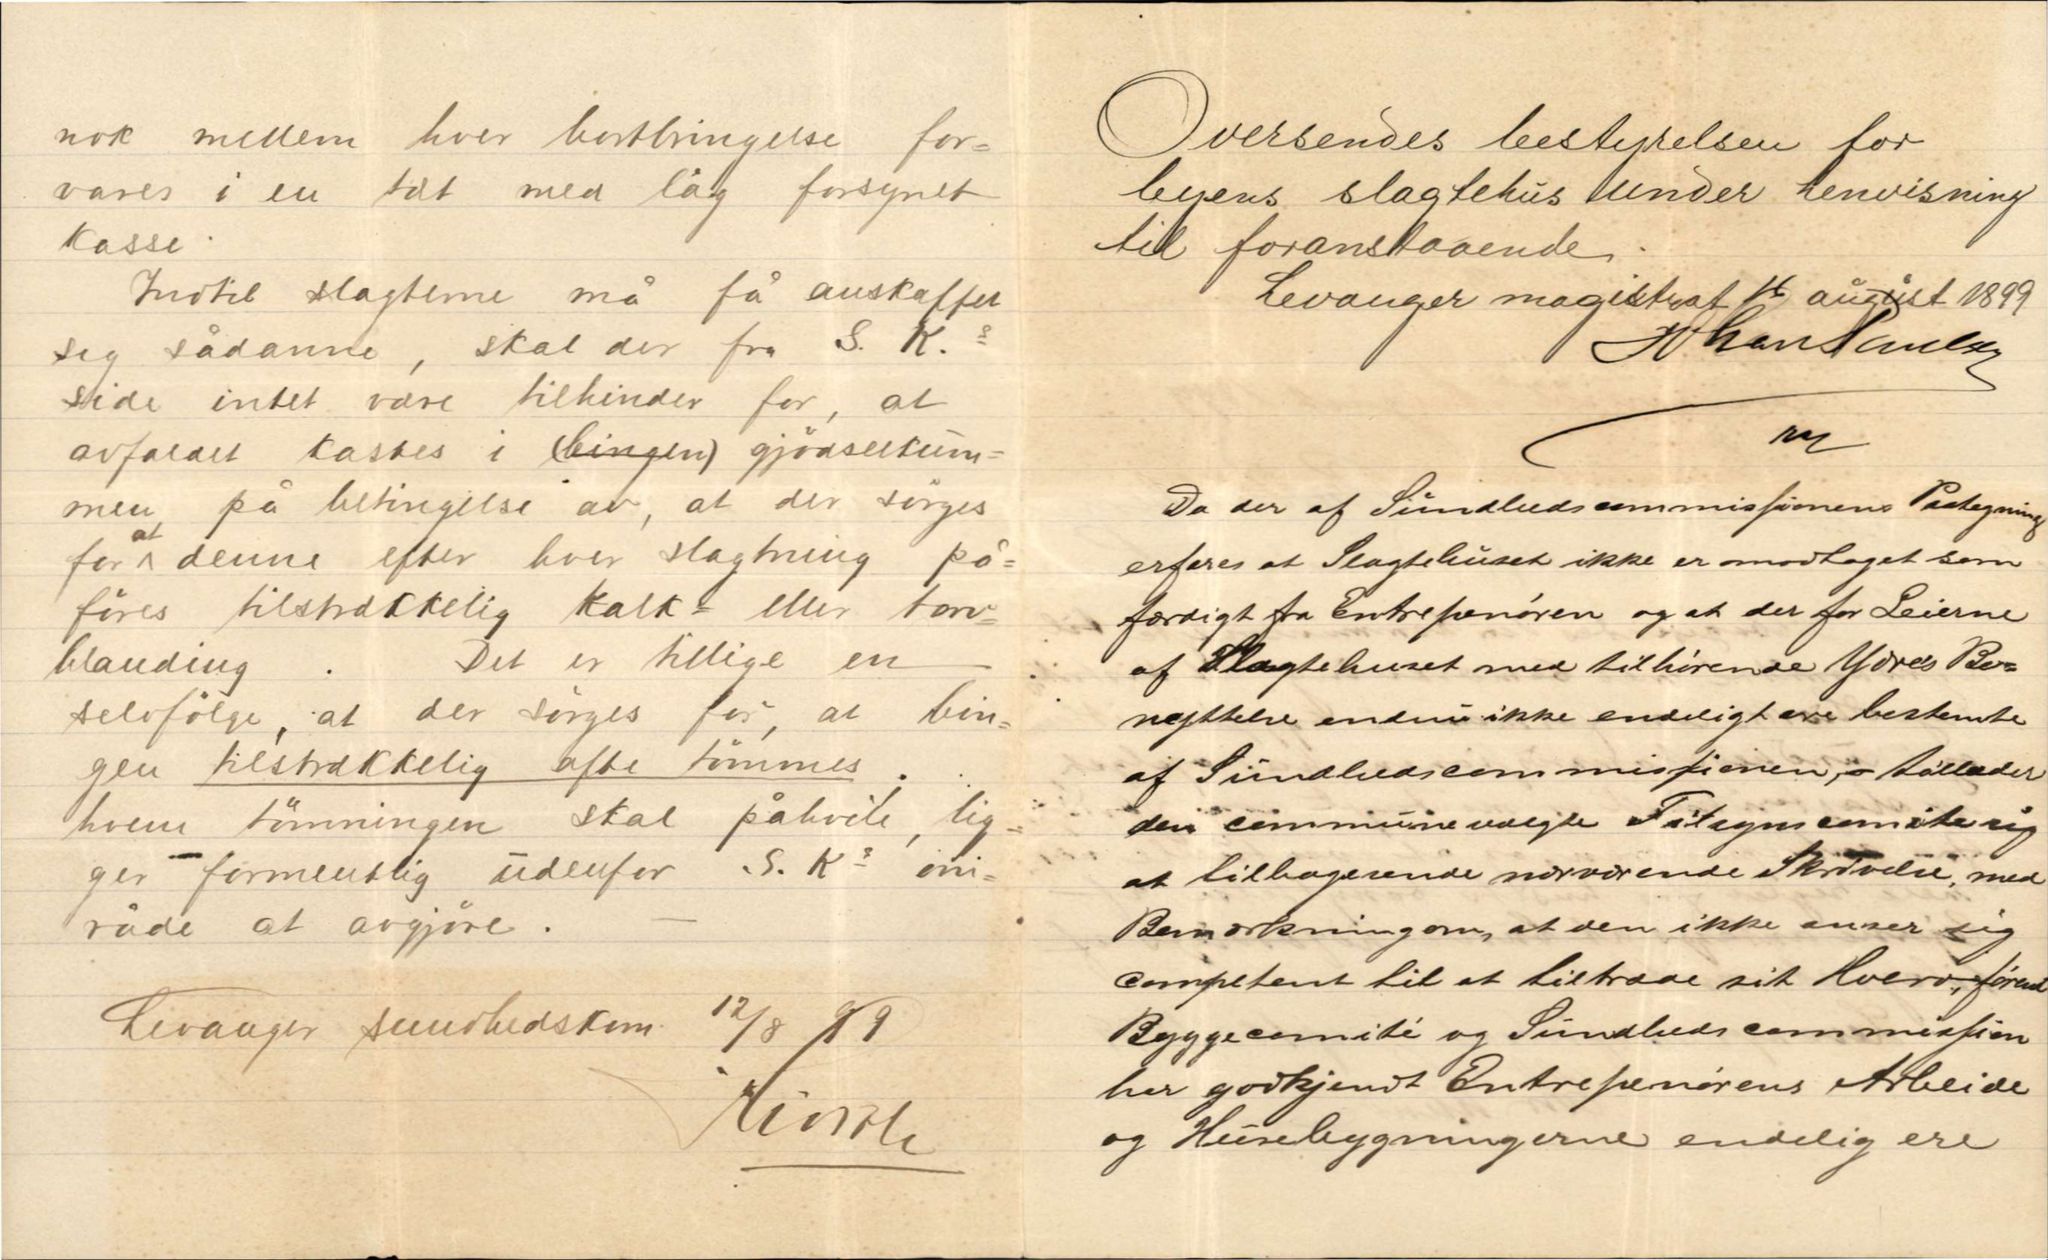 nok mellem hver bortbringelse for=
vares i en tæt med låg forsynet
kasse.
Indtil slagterne må få anskaffet
sig sådanne, skal der fra S. K.s
side intet være tilhinder for, at
avfaldet kastes i (bingen) gjödselkum=
men på betingelse av, at der sörges
for at denne efter hver slagtning på=
föres tilstrækkelig kalk= eller torv=
blanding. Det er tillige en
selvfölge, at der sörges for, at bin=
gen tilstrækkelig ofte tömmes.
hvem tömningen skal påhvile, lig=
ger formentlig udenfor S. Ks om=
råde at avgjöre. —
Levanger sundhedskom. 12/8 99
Oversendes bestyrelsen for
byens slagtehus under henvisning
til foranstaaende.
Levanger magistrat august 1899
Johan Paulsen
Da der af Sundhedscommissionens Paategning
erfares at Slagtehuset ikke er modtaget som
færdigt fra Entreprenøren og at der for Leierne
af Slagtehuset med tilhørende Ydres Be=
nyttelse endnu ikke endeligt ere bestemte
af Sundhedscommissionen, tillader
den communevalgte Tilsynscomite sig
at tilbagesende nærværende Skrivelse, med
Bemærkning om, at den ikke anser sig
competent til at tiltræde sit Hverv, førend
Byggecomité og Sundhedscommission
har godkjendt Entreprenørens Arbeide
og Husebygningerne endelig ere